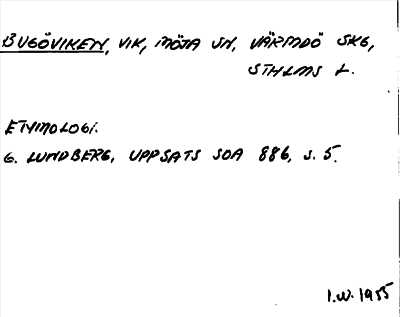 BUGÖVIKEN, VIK, MÖJA SN, VÄRMDÖ SKG,
STHLMS L.
ETYMOLOGI.
G. LUNDBERG, UPPSATS SOA 886, S. 5.
I.W. 1955